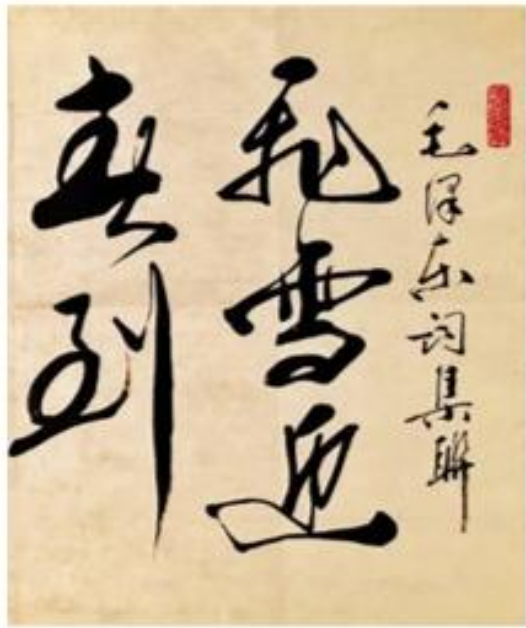 毛泽东词集聯
飛雪迎
春到